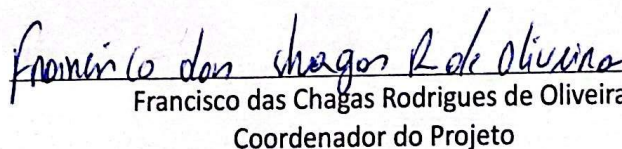 Francisco das Chagas R de Oliveira
Francisco das Chagas Rodrigues de Oliveira
Coordenador do Projeto